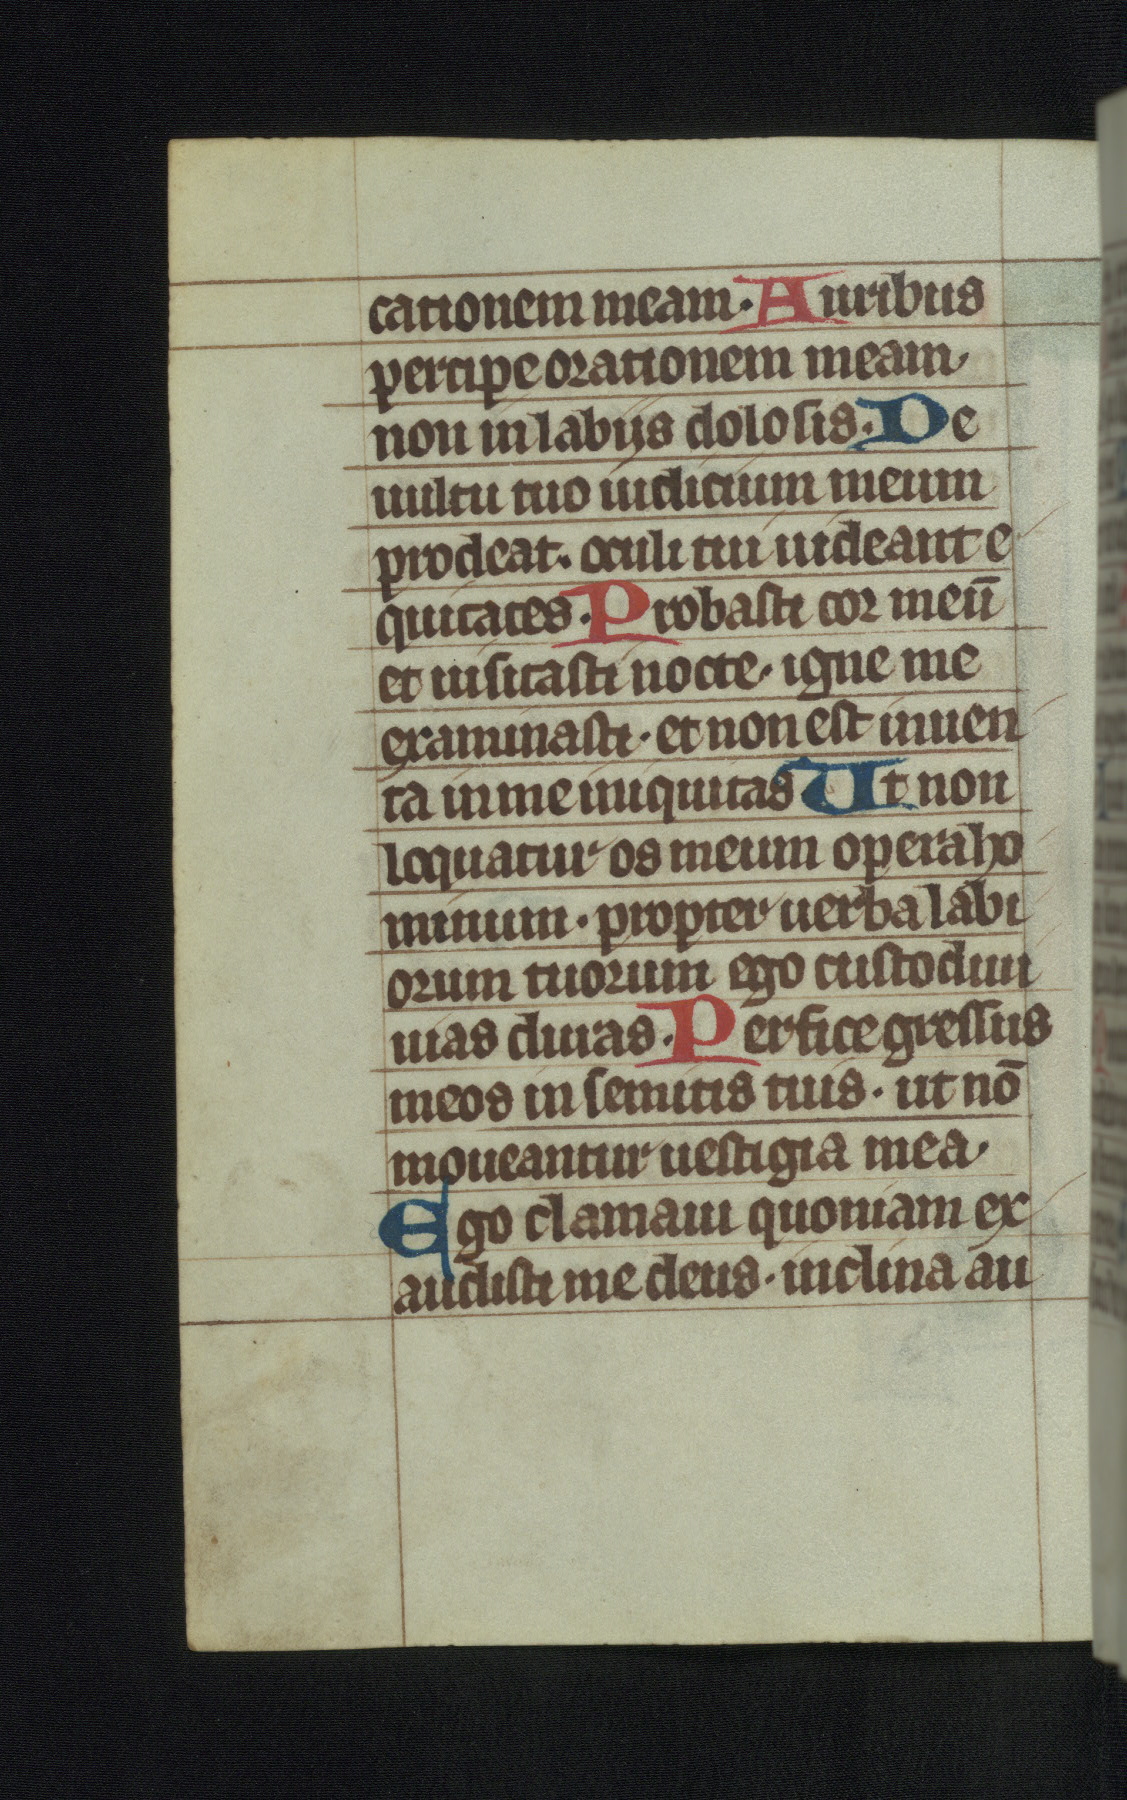 cationem meam. Auribus
percipe orationem meam
non in labijs dolosis. De
uultu tuo iudicium meum
prodeat. oculi tui uideant e
quitates. Probasti cor meū
et uisitasti nocte. igne me
examinasti. et non est inuen
ta in me iniquitas Ut non
loquatur os meum opera ho
minum. propter uerba labi
orum tuorum ego custodiui
uias duras. Perfice gressus
meos in semitis tuis. ut nō
moueantur uestigia mea.
Ego clamaui quoniam ex
audisti me deus. inclina au